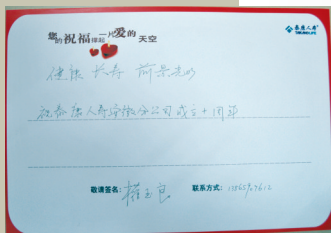 您的祝福撑起一片爱的天空
泰康人寿
TAIKANG LIFE
健康 长寿 前景光明
祝泰康人寿安徽分公司成立十周年
敬请签名：
联系方式：